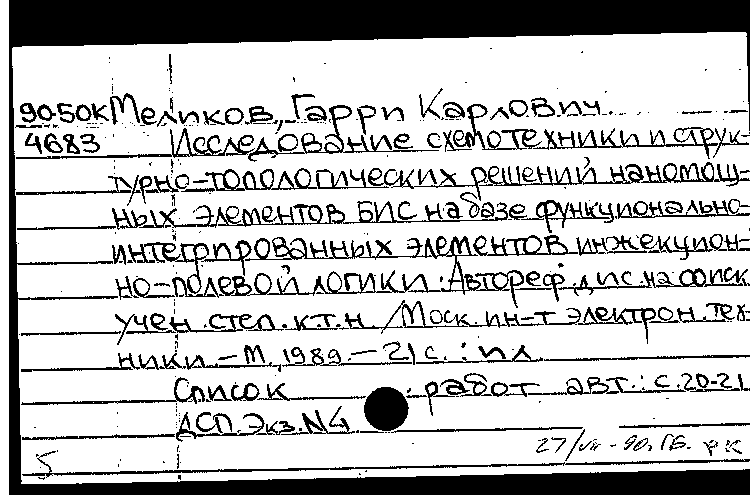 90-50К Меликов, Гарри Карлович.
4683 Исследование схемотехники и струк-
турно-топологических решений наномощ-
ных элементов БИС на базе функционально-
интегрированных элементов инжекцион-
но-полевой логики: Автореф. дис. на соиск.
учен. степ. к.т.н. /Моск. ин-т электрон. тех-
ники. - М., 1989. - 21 с. : ил.
Список работ авт.: с. 20-21
ДСП. Экз. N4
5 27/VII-90. ГБ. РК